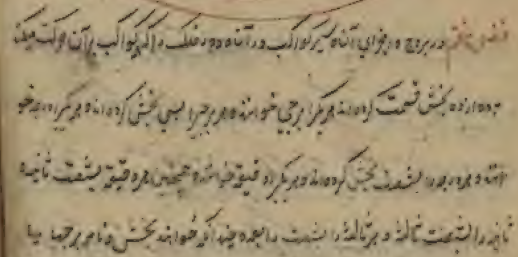 فصل هفتم در بروج و اجزای آن سیر کواکب و راه دور فلک را که کواکب بر آن حرکت میکنند
بدوازده بخش قسمت کرده‌اند هر یکرا برجی خوانند و هر برجیرا بسی بخش کرده‌اند و هر یکرا درجه خو
انند و هر درجه را بشصت بخش کرده‌اند و هر یکرا دقیقه خوانند و همچنین هر دقیقه بشصت ثانیه
ثانیه را بشصت ثالثه و هر ثالثه را بشصت رابعه چند آنکه خواهند بخش و نام برجها